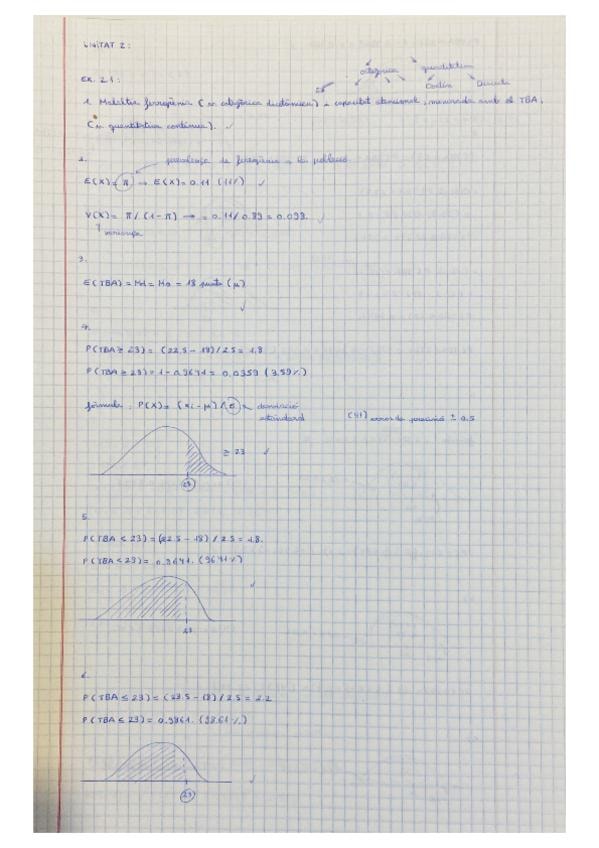 UNITAT 2:
categòrica quantitativa
Contín Discreta
EX. 2.1:
1. Malaltia ferropènia (és categòrica dicotòmica) capacitat atencional, mesurada amb el TBA.
(és quantitativa contínua). ✓
2. percentatge de ferropènia a la població
E(X) = π → E(X) = 0.11 (11%) ✓
V(X) = π / (1-π) → = 0.11/0.89 = 0.098. ✓
variança
3.
E(TBA) = Md = Mo = 18 punts (μ)
✓
4.
P(TBA ≥ 23) = (22.5 - 18) / 2.5 = 1.8
P(TBA ≥ 23) = 1 - 0.9641 = 0.0359 (3.59%)
fórmula: P(X) = (xi - μ) / σ desviació
estàndard
(!!!) error de precisió ± 0.5
≥ 23 ✓
23
5.
P(TBA < 23) = (22.5 - 18) / 2.5 = 1.8.
P(TBA < 23) = 0.9641. (96.41%)
✓
23
6.
P(TBA ≤ 23) = (23.5 - 18) / 2.5 = 2.2
P(TBA ≤ 23) = 0.9861. (98.61%)
✓
23